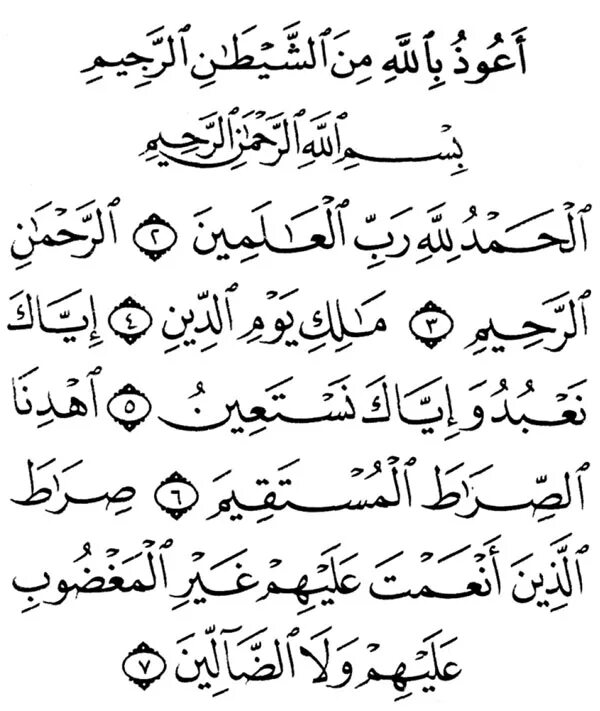 أَعُوذُ بِٱللَّهِ مِنَ ٱلشَّيْطَـٰنِ ٱلرَّجِيمِ
بِسْمِ ٱللَّهِ ٱلرَّحْمَـٰنِ ٱلرَّحِيمِ
ٱلْحَمْدُ لِلَّهِ رَبِّ ٱلْعَـٰلَمِينَ ٢ ٱلرَّحْمَـٰنِ
ٱلرَّحِيمِ ٣ مَـٰلِكِ يَوْمِ ٱلدِّينِ ٤ إِيَّاكَ
نَعْبُدُ وَإِيَّاكَ نَسْتَعِينُ ٥ ٱهْدِنَا
ٱلصِّرَٰطَ ٱلْمُسْتَقِيمَ ٦ صِرَٰطَ
ٱلَّذِينَ أَنْعَمْتَ عَلَيْهِمْ غَيْرِ ٱلْمَغْضُوبِ
عَلَيْهِمْ وَلَا ٱلضَّآلِّينَ ٧